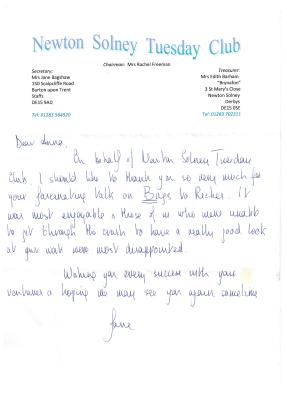 Newton Solney Tuesday Club
Chairman: Mrs Rachel Freeman
Secretary:
Mrs Jane Bagshaw
150 Scalpcliffe Road
Burton upon Trent
Staffs
DE15 9AQ
Tel: 01283 564520
Treasurer:
Mrs Edith Barham
"Brynafon"
3 St Mary's Close
Newton Solney
Derbys
DE15 0SE
Tel: 01283 702311
Dear
On behalf of Newton Solney Tuesday
Club. I should like to thank you so very much for
your fascinating talk on Bags to Riches. It
was most enjoyable & those of us who were unable
to get through the crush to have a really good look
at your work were most disappointed.
Wishing you every success with your
ventures & hoping we may see you again sometime
Jane